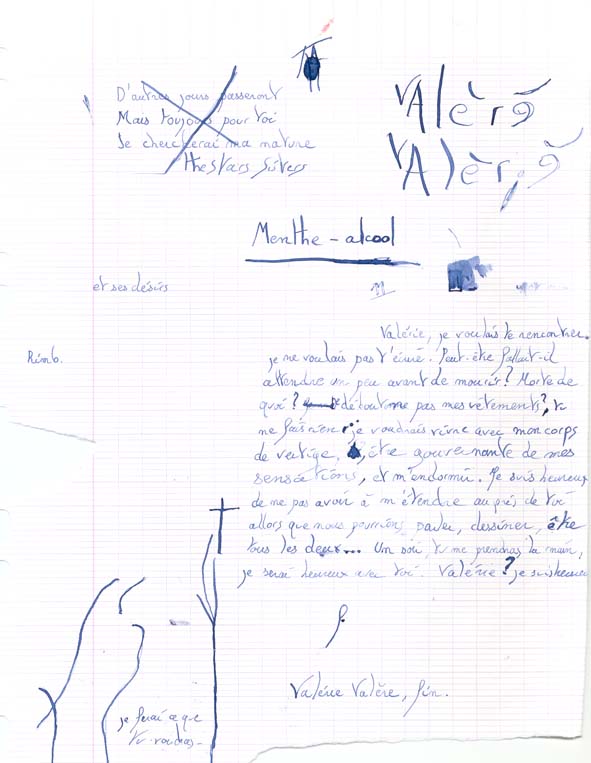 D'autres jours passeront
Mais toujours pour toi
Je chercherai ma nature
the Stars Sisters
VAlèrə
VAlèrə
Menthe - alcool
et ses désirs
Rimb.
Valérie, je voulais te rencontrer.
je ne voulais pas t'aimé. Peut-être fallait-il
attendre un peu avant de mourir? Morte de
quoi? déboutonne pas mes vêtements?, tu
me fais rien je voudrais vivre avec mon corps
de vertige, être gouvernante de mes
sensations, et m'endormir. Je suis heureux
de ne pas avoir à m'étendre auprès de toi
allors que nous pourrions parler, dessiner, être
tous les deux... Un soir, tu me prendras la main,
je serai heureux avec toi. Valérie? je suis heureux
f.
Valérie Valère, fin.
je ferai ce que
tu voudras-